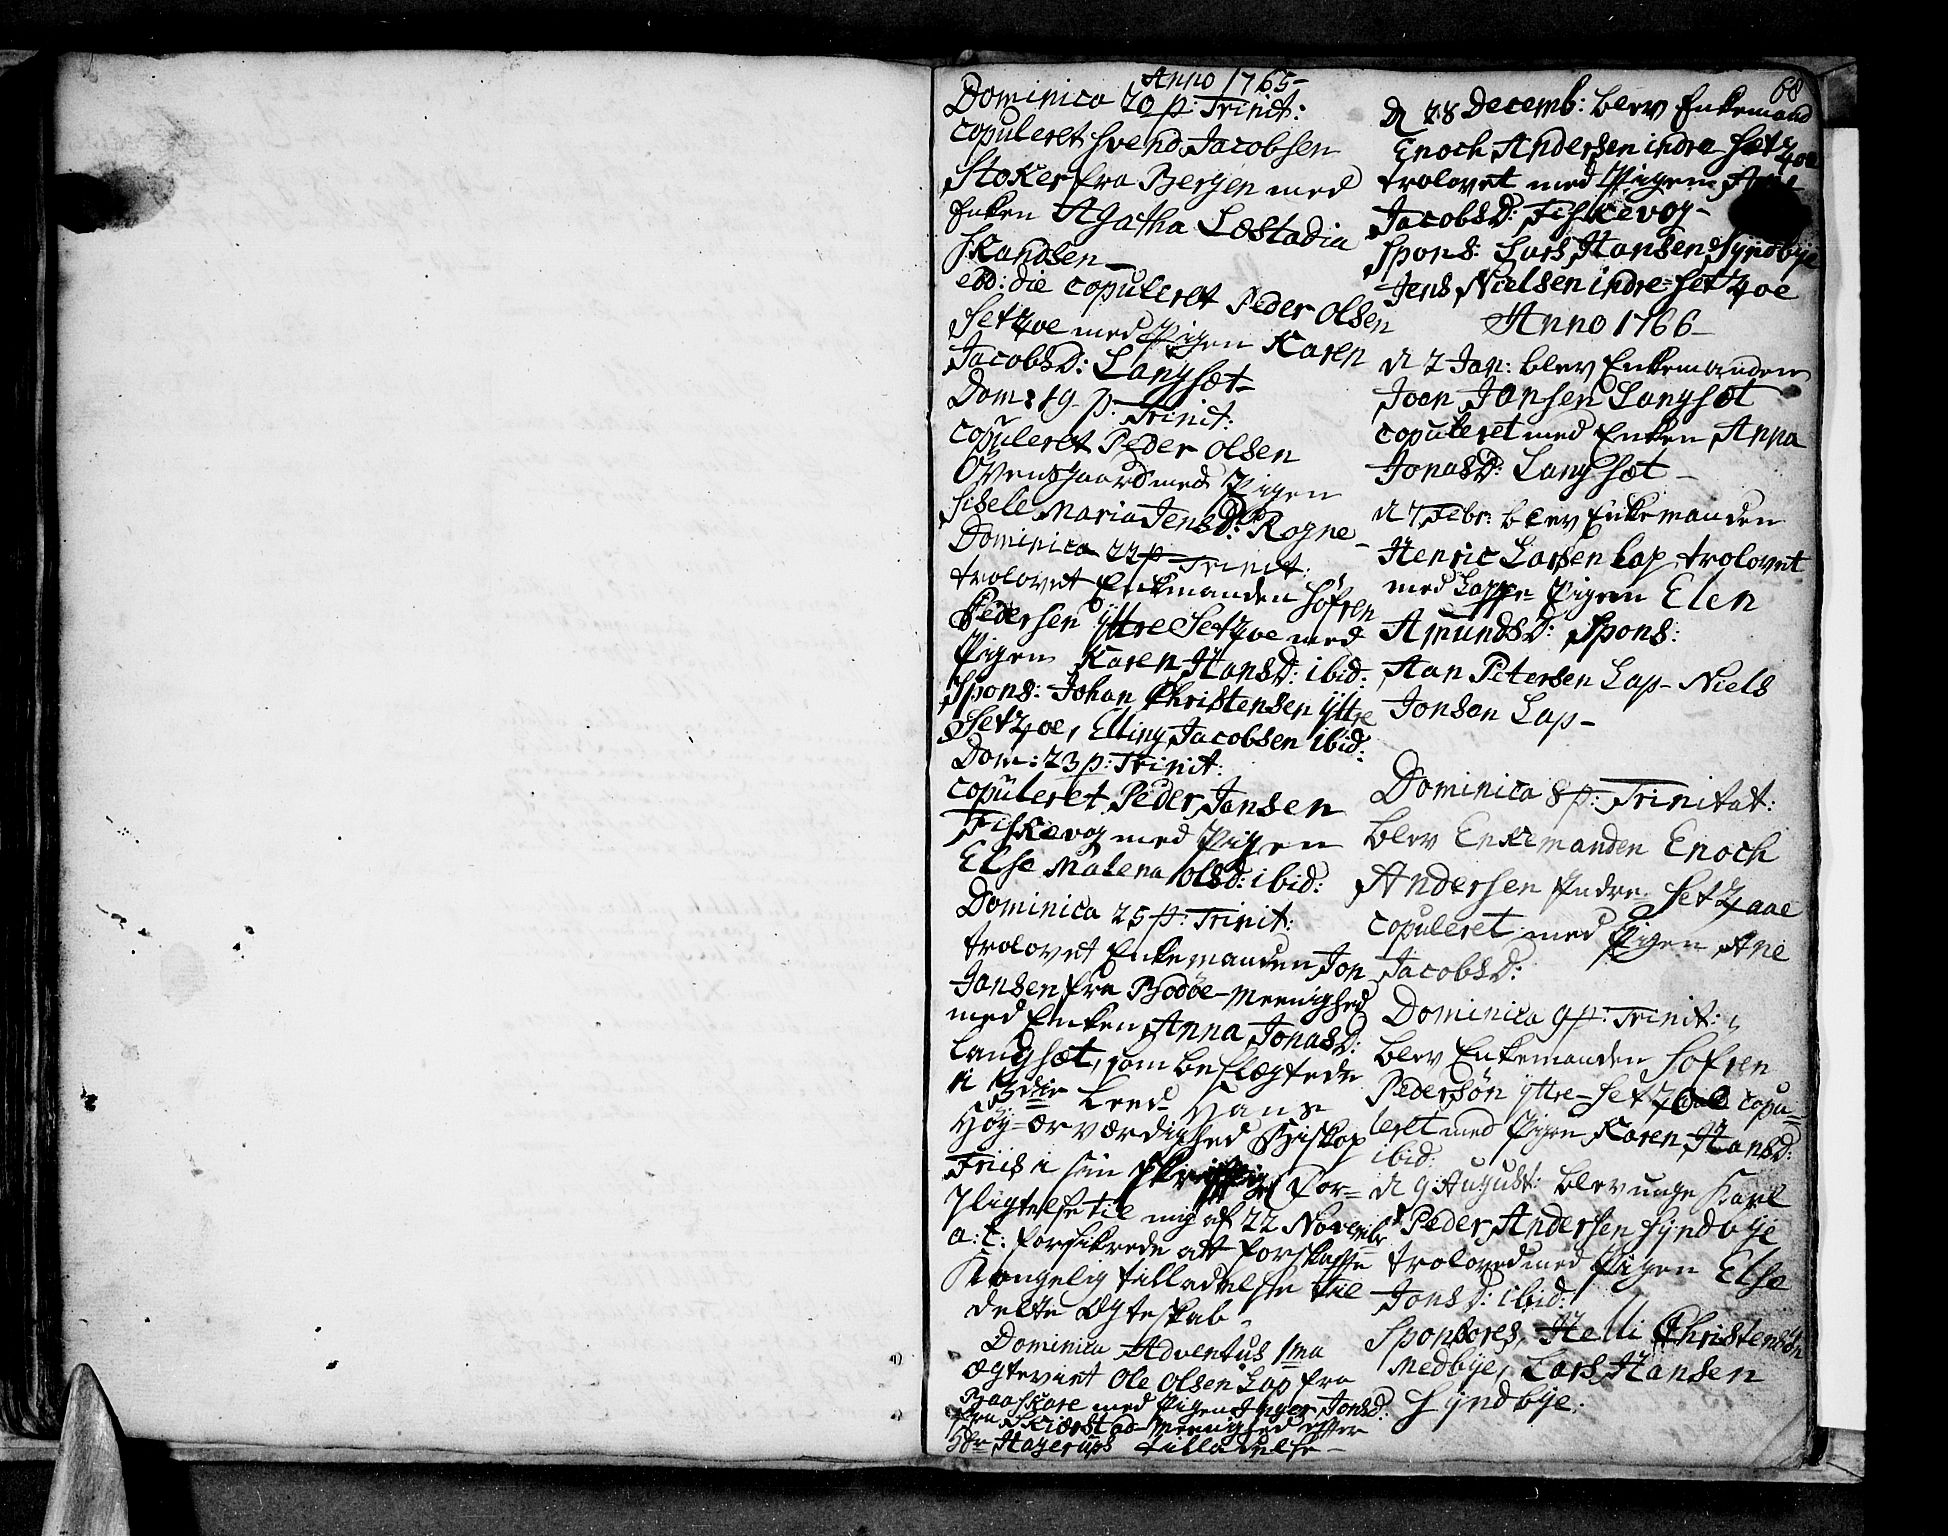 68
Anno 1765-
Dominica 20 p: Trinit:
copuleret Svend Jacobsen
Stoker fra Bergen med
Enken Agatha Læstadia
Skandsen-
eod: die copuleret Peder Olsen
Setzoe med Pigen Karen
JacobsD: Langsæt-
Dom: 19 p: Trinit:
copuleret Peder Olsen
Øvensgaard med Pigen
Sisele Maria JensD: Rogne-
Dominica 22 p Trinit:
trolovet Enkmanden Søfren
Pedersen Yttre Setzoe med
Pigen Karen HansD: ibid:
Spons: Johan Christensen Yttre
Setzoe, Elling Jacobsen ibid:
Dom: 23 p: Trinit:
copuleret Peder Jansen
Fiskevog med Pigen
Else Malena OlsD: ibid:
Dominica 25 p: Trinit:
trolovet Enkemanden Jon
Jansen fra Bodöe-Meenighed
med Enken Anna JonasD:
Langsæt, som beslægtede
i 3die Leed Hans
Höy-ærværdighed Biskop
Friis i sin skriftlig For=
pligtelse til mig af 22 Novembr
a: c: forsikrede att forskaffe
Kongelig tilladelse til
dette Ægteskab.
Dominica Adventus 1ma
Ægteviet Ole Olsen Lap fra
Baaskare med Pigen Inger JonsD:
fra Skiørstad Meenighed efter
Hr Hagerups tilladelse-
d 28 Decemb: blev Enkemand
Enoch Andersen indre Sætzoe
trolovet med Pigen Ane
JacobsD: Fiskevog-
Spons: Lars Hansen Syndbye
Jens Nielsen indre=Setzoe
Anno 1766-
d 2 Jan: blev Enkemanden
Joen Jansen Langsæt
copuleret med Enken Anna
JonasD: Langsæt-
d 7 Febr: blev Enkemanden
Henric Larsen Lap trolovet
med Lappe Pigen Elen
AmundsD: Spons:
Aan Pitersen Lap- Niels
Jonsen Lap-
Dominica 8 p: Trinitat:
blev Enkemanden Enoch
Andersen Indre Setzaae
copuleret med Pigen Ane
JacobsD:
Dominica 9 p: Trinit:
blev Enkemanden Sofren
Pedersøn yttre-Setzoe copu=
leret med Pigen Karen HansD:
ibid:
d 9 August: blev unge Karl
Peder Andersen Syndbye
troloved med Pigen Else
JonsD: ibid:
Sponsores, Helli Christensøn
Medbye, Lars Hansen
Syndbye.